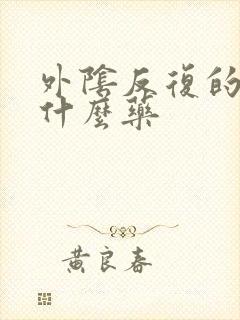 外陰反復的
什麼藥
黃良春